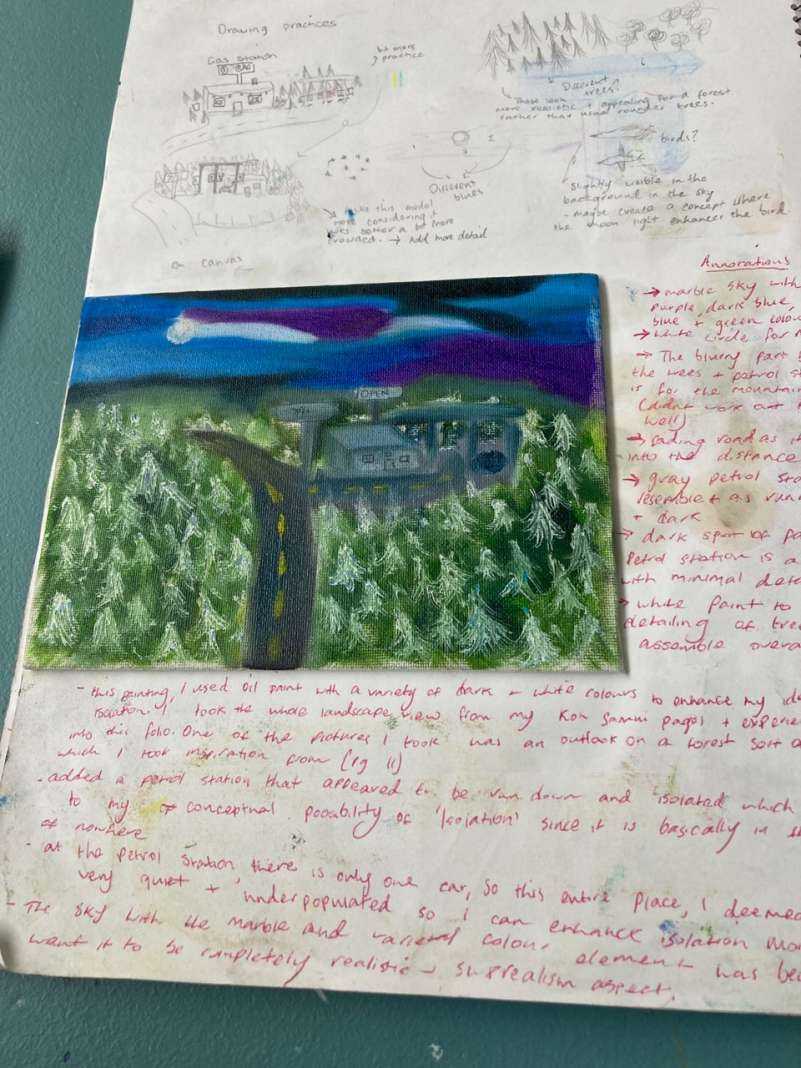 Drawing practices
Gas station
bit more
practice
Different
trees?
These seem
more realistic + appealing for a forest
rather than usual rounder trees.
birds?
Different
blues
Slightly visible in the
background in the sky
- maybe create a concept where
the moon light enhances the bird.
this model
more considering it
looks better a bit more
crowded. → Add more detail
on canvas
OPEN
Annotations
→ marble sky with
purple, dark blue,
blue + green colou
→ white circle for m
→ The blurry part
the trees + petrol st
is for the mountain
(didnt work out
well)
→ fading road as it
into the distance
→ gray petrol sta
resemble it as run
+ dark
→ dark spot of pa
Petrol station is a
with minimal deta
→ white paint to
detailing of tree
assemble overa
- this painting, I used oil paint with a variety of dark + white colours to enhance my ide
isolation. I took the whole landscape view from my Koh Samui pages + experie
into this folio. One of the pictures I took was an outlook on a forest sort a
which I took inspiration from (pg 11)
- added a petrol station that appeared to be run down and isolated which
to my conceptual possibility of 'Isolation' since it is basically in
of nowhere
- at the petrol station, there is only one car, so this entire place, I deemed
very quiet + underpopulated so I can enhance isolation mo
- The sky with the marble and varietal colour element was bec
want it to be completely realistic → surrealism aspect.